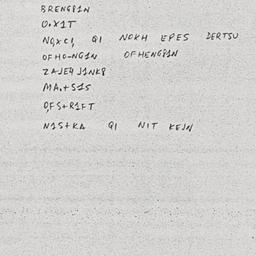 BRENG81N
0.X1T
NQXC, QI NOKH EPES DERTSU
OFHO-NG1N OFHENG81N
ZAJE4 J1NK8
MA.+S1S
O,FS+R1FT
N1S+KA QI NIT KEJN